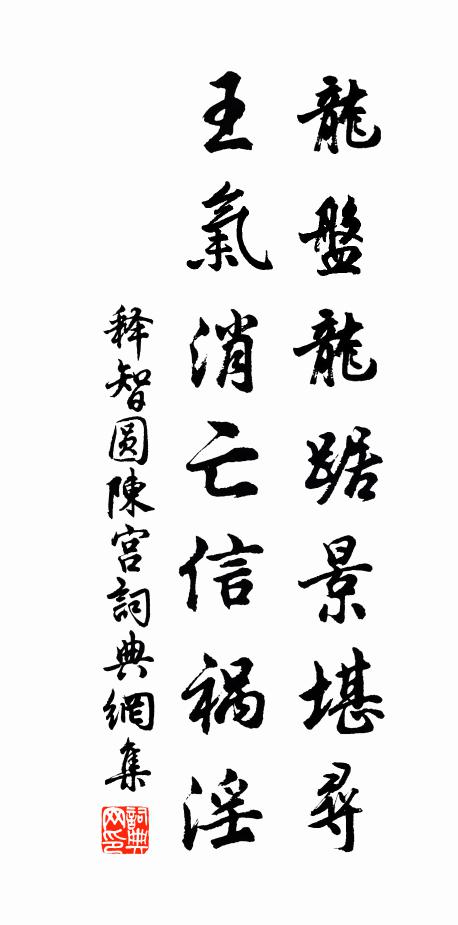 龍盤龍踞景堪尋
王氣消亡信禍淫
释智圓陳宫詞典網集
詞典網印